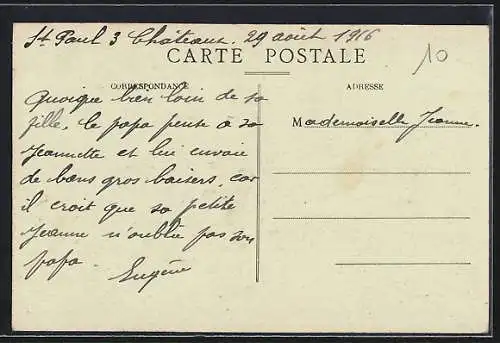 St Paul 3 Châteaux. 29 août 1916
CARTE POSTALE
10
CORRESPONDANCE
ADRESSE
Quoique bien loin de sa
fille, le papa pense à sa
Jeannette et lui envoie
de bons gros baisers, car
il croit que sa petite
Jeanne n'oublie pas son
papa.
Eugène
Mademoiselle Jeanne.